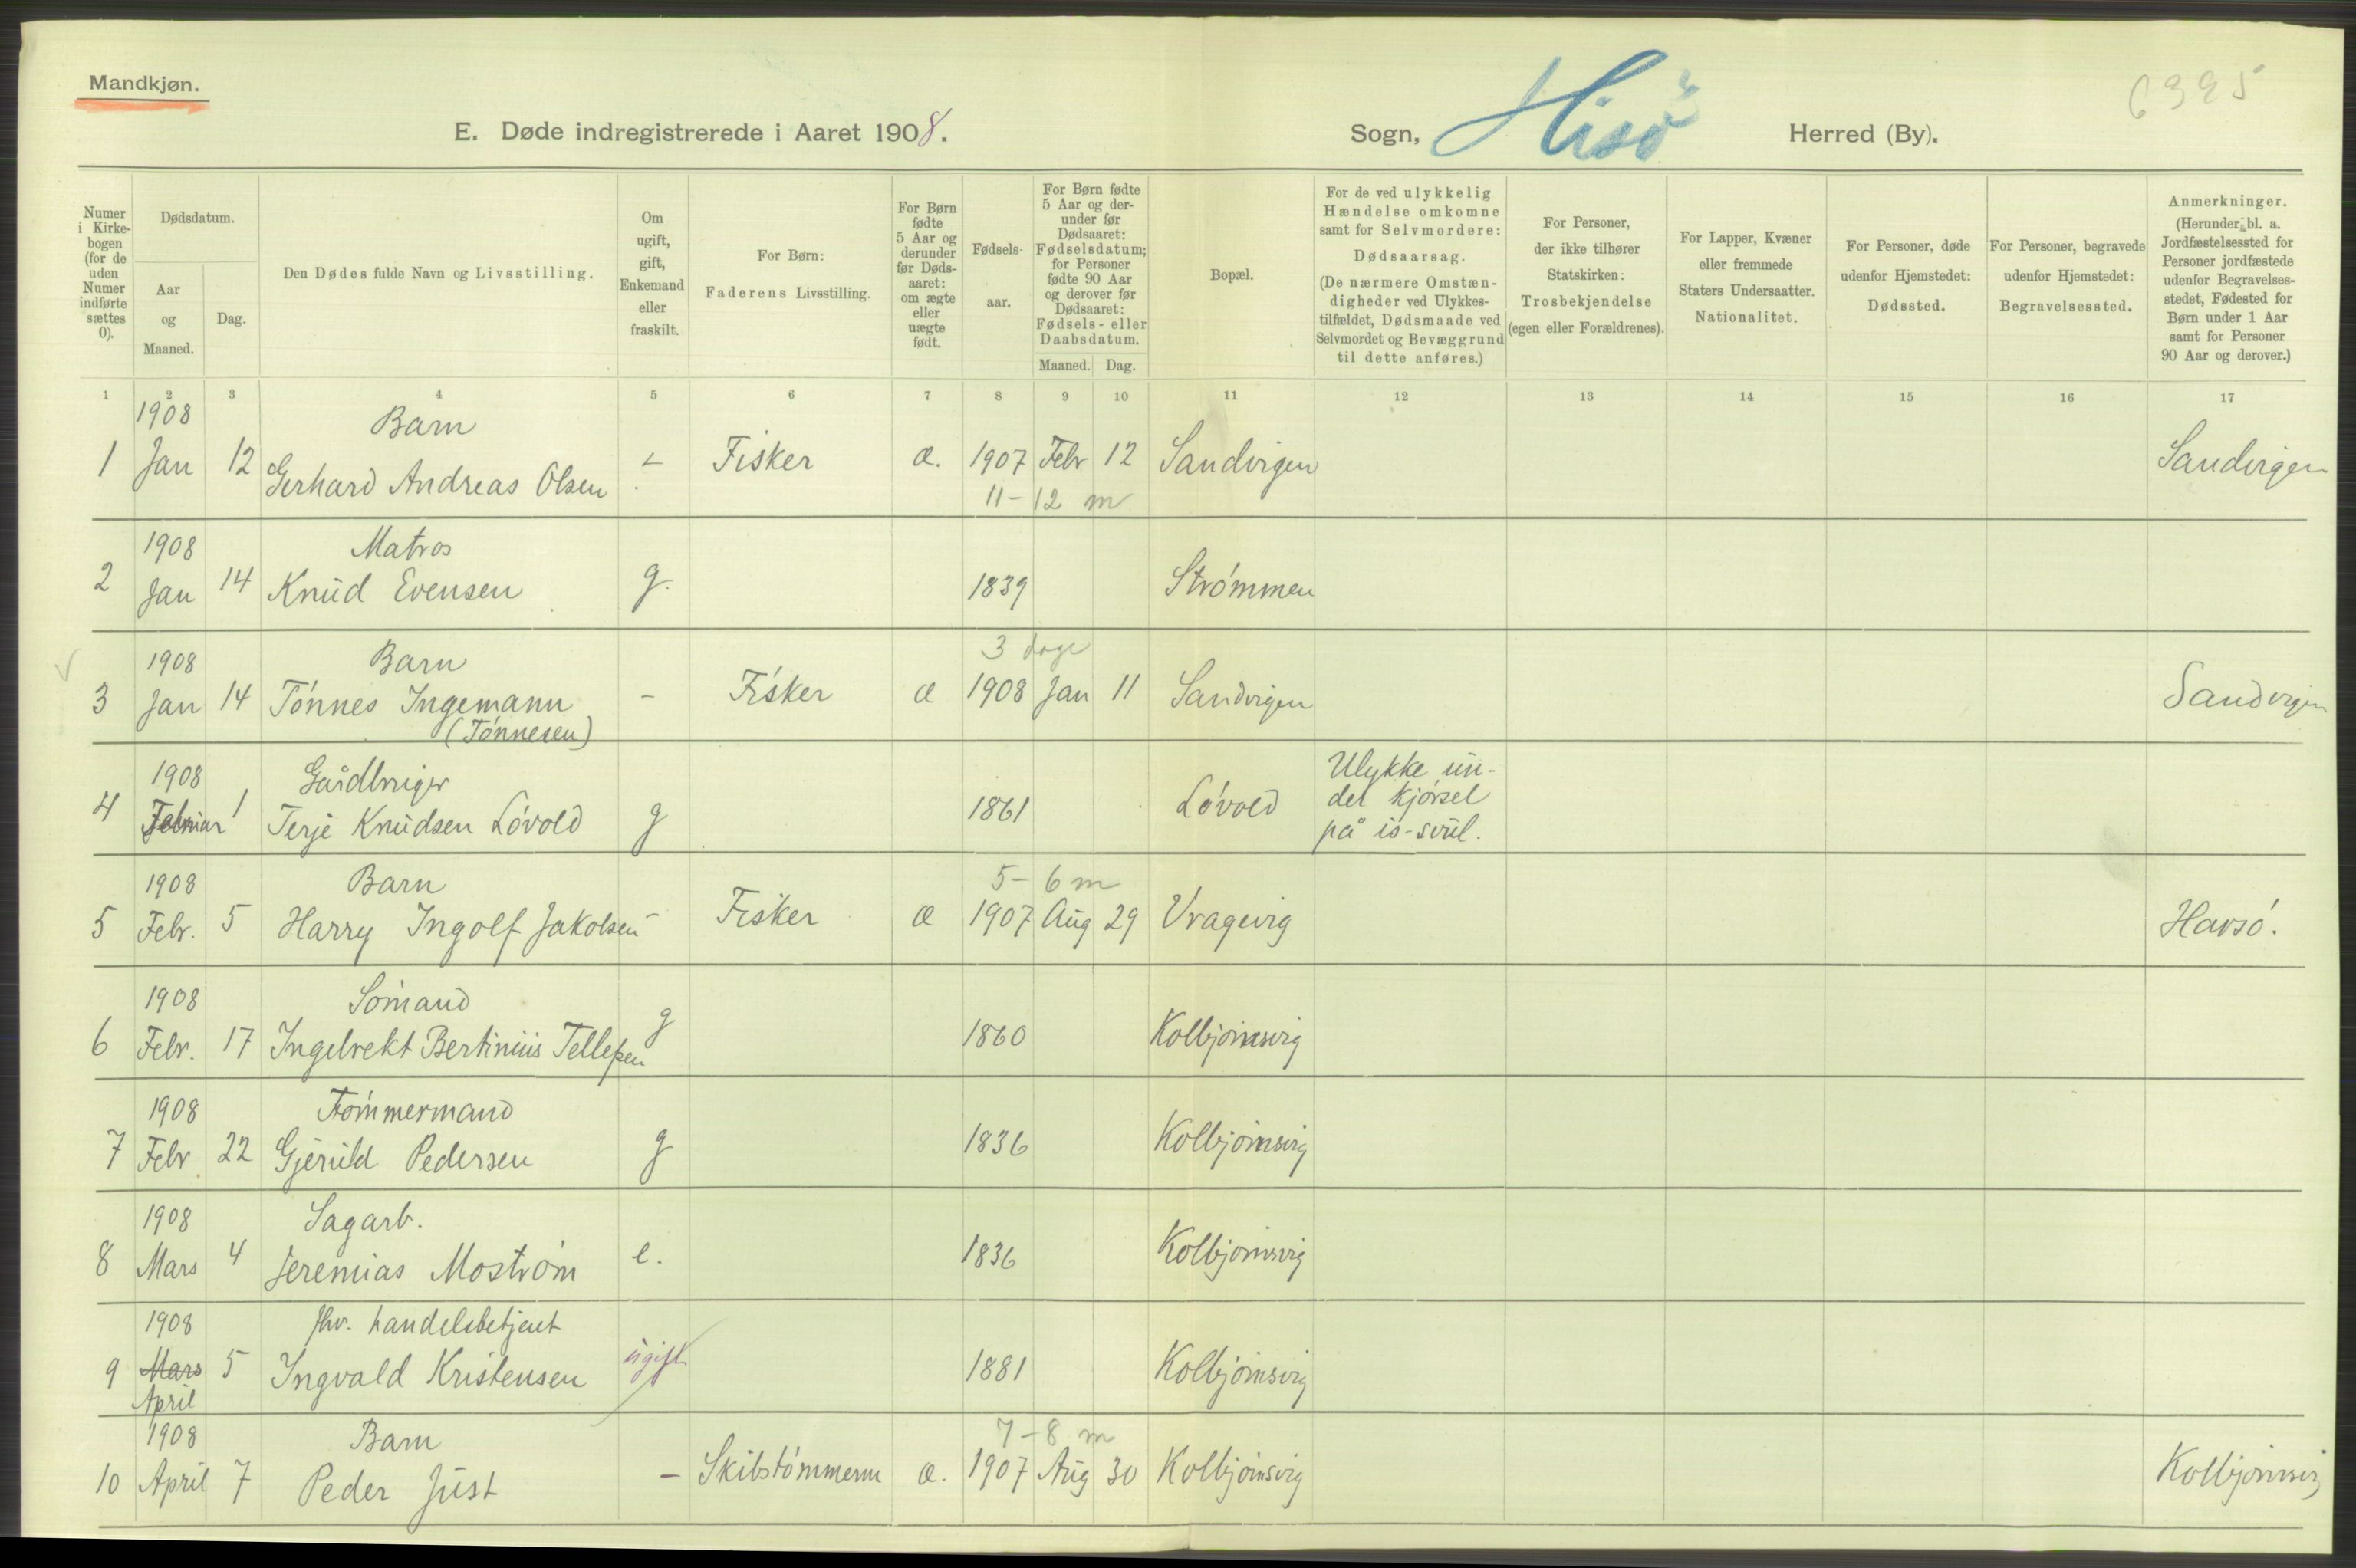 Mandkjøn.
6395
E. Døde indregistrerede i Aaret 1908. Sogn, Hisö Herred (By).
Numer i Kirke-bogen (for de uden Numer indførte sættes 0).
Dødsdatum.
Aar og Maaned.
Dag.
Den Dødes fulde Navn og Livsstilling.
Om ugift, gift, Enkemand eller fraskilt.
For Børn: Faderens Livsstilling.
For Børn fødte 5 Aar og derunder før Døds-aaret: om ægte eller uægte født.
Fødsels-aar.
For Børn fødte 5 Aar og der-under før Dødsaaret: Fødselsdatum; for Personer fødte 90 Aar og derover før Dødsaaret: Fødsels- eller Daabsdatum.
Maaned. Dag.
Bopæl.
For de ved ulykkelig Hændelse omkomne samt for Selvmordere: Dødsaarsag. (De nærmere Omstæn-digheder ved Ulykkes-tilfældet, Dødsmaade ved Selvmordet og Bevæggrund til dette anføres.)
For Personer, der ikke tilhører Statskirken: Trosbekjendelse (egen eller Forældrenes).
For Lapper, Kvæner eller fremmede Staters Undersaatter. Nationalitet.
For Personer, døde udenfor Hjemstedet: Dødssted.
For Personer, begravede udenfor Hjemstedet: Begravelsessted.
Anmerkninger. (Herunder bl. a. Jordfæstelsessted for Personer jordfæstede udenfor Begravelses-stedet, Fødested for Børn under 1 Aar samt for Personer 90 Aar og derover.)
1 2 3 4 5 6 7 8 9 10 11 12 13 14 15 16 17
1908 Barn
1 Jan 12 Gerhard Andreas Olsen - Fisker æ. 1907 Febr 12 Sandvigen Sandvigen
11-12 m
1908 Matros
2 Jan 14 Knud Evensen g. 1839 Strømmen
1908 Barn 3 dage
3 Jan 14 Tønnes Ingemann - Fisker æ 1908 Jan 11 Sandvigen Sandvigen
(Tønnesen)
1908 Gårdbruger Ulykke un-
4 Februar 1 Terje Knudsen Løvold g 1861 Løvold der kjørsel
på is-svul.
1908 Barn 5-6 m
5 Febr. 5 Harry Ingolf Jakobsen - Fisker æ 1907 Aug 29 Vragevig Havsø.
1908 Sømand
6 Febr. 17 Ingebrekt Bertinius Tellefsen g 1860 Kolbjørnsvig
1908 Tømmermand
7 Febr 22 Gjeruld Pedersen g 1836 Kolbjørnsvig
1908 Sagarb.
8 Mars 4 Jeremias Mostrøm e. 1836 Kolbjørnsvig
1908 fhv. handelsbetjent
9 Mars 5 Ingvald Kristensen ugift 1881 Kolbjørnsvig
April
1908 Barn 7-8 m
10 April 7 Peder Just - Skibstømmerm æ. 1907 Aug 30 Kolbjørnsvig Kolbjørnsvig